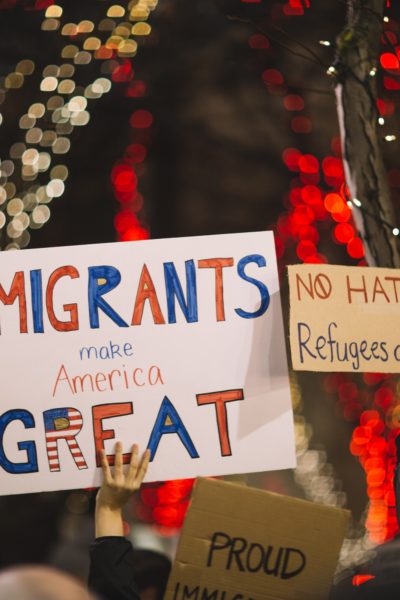 MIGRANTS
make
America
GREAT
NO HAT
Refugees
PROUD